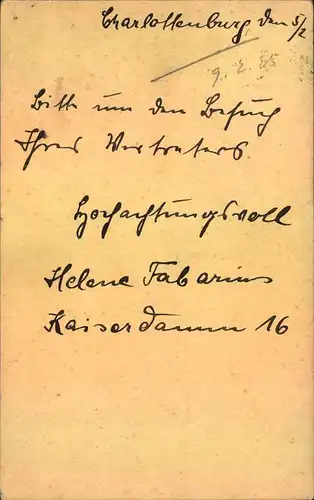 Charlottenburg, den 5/2
9. 2. 25
Bitte um den Besuch
Ihres Vertreters.
Hochachtungsvoll
Helene Fabarius
Kaiserdamm 16